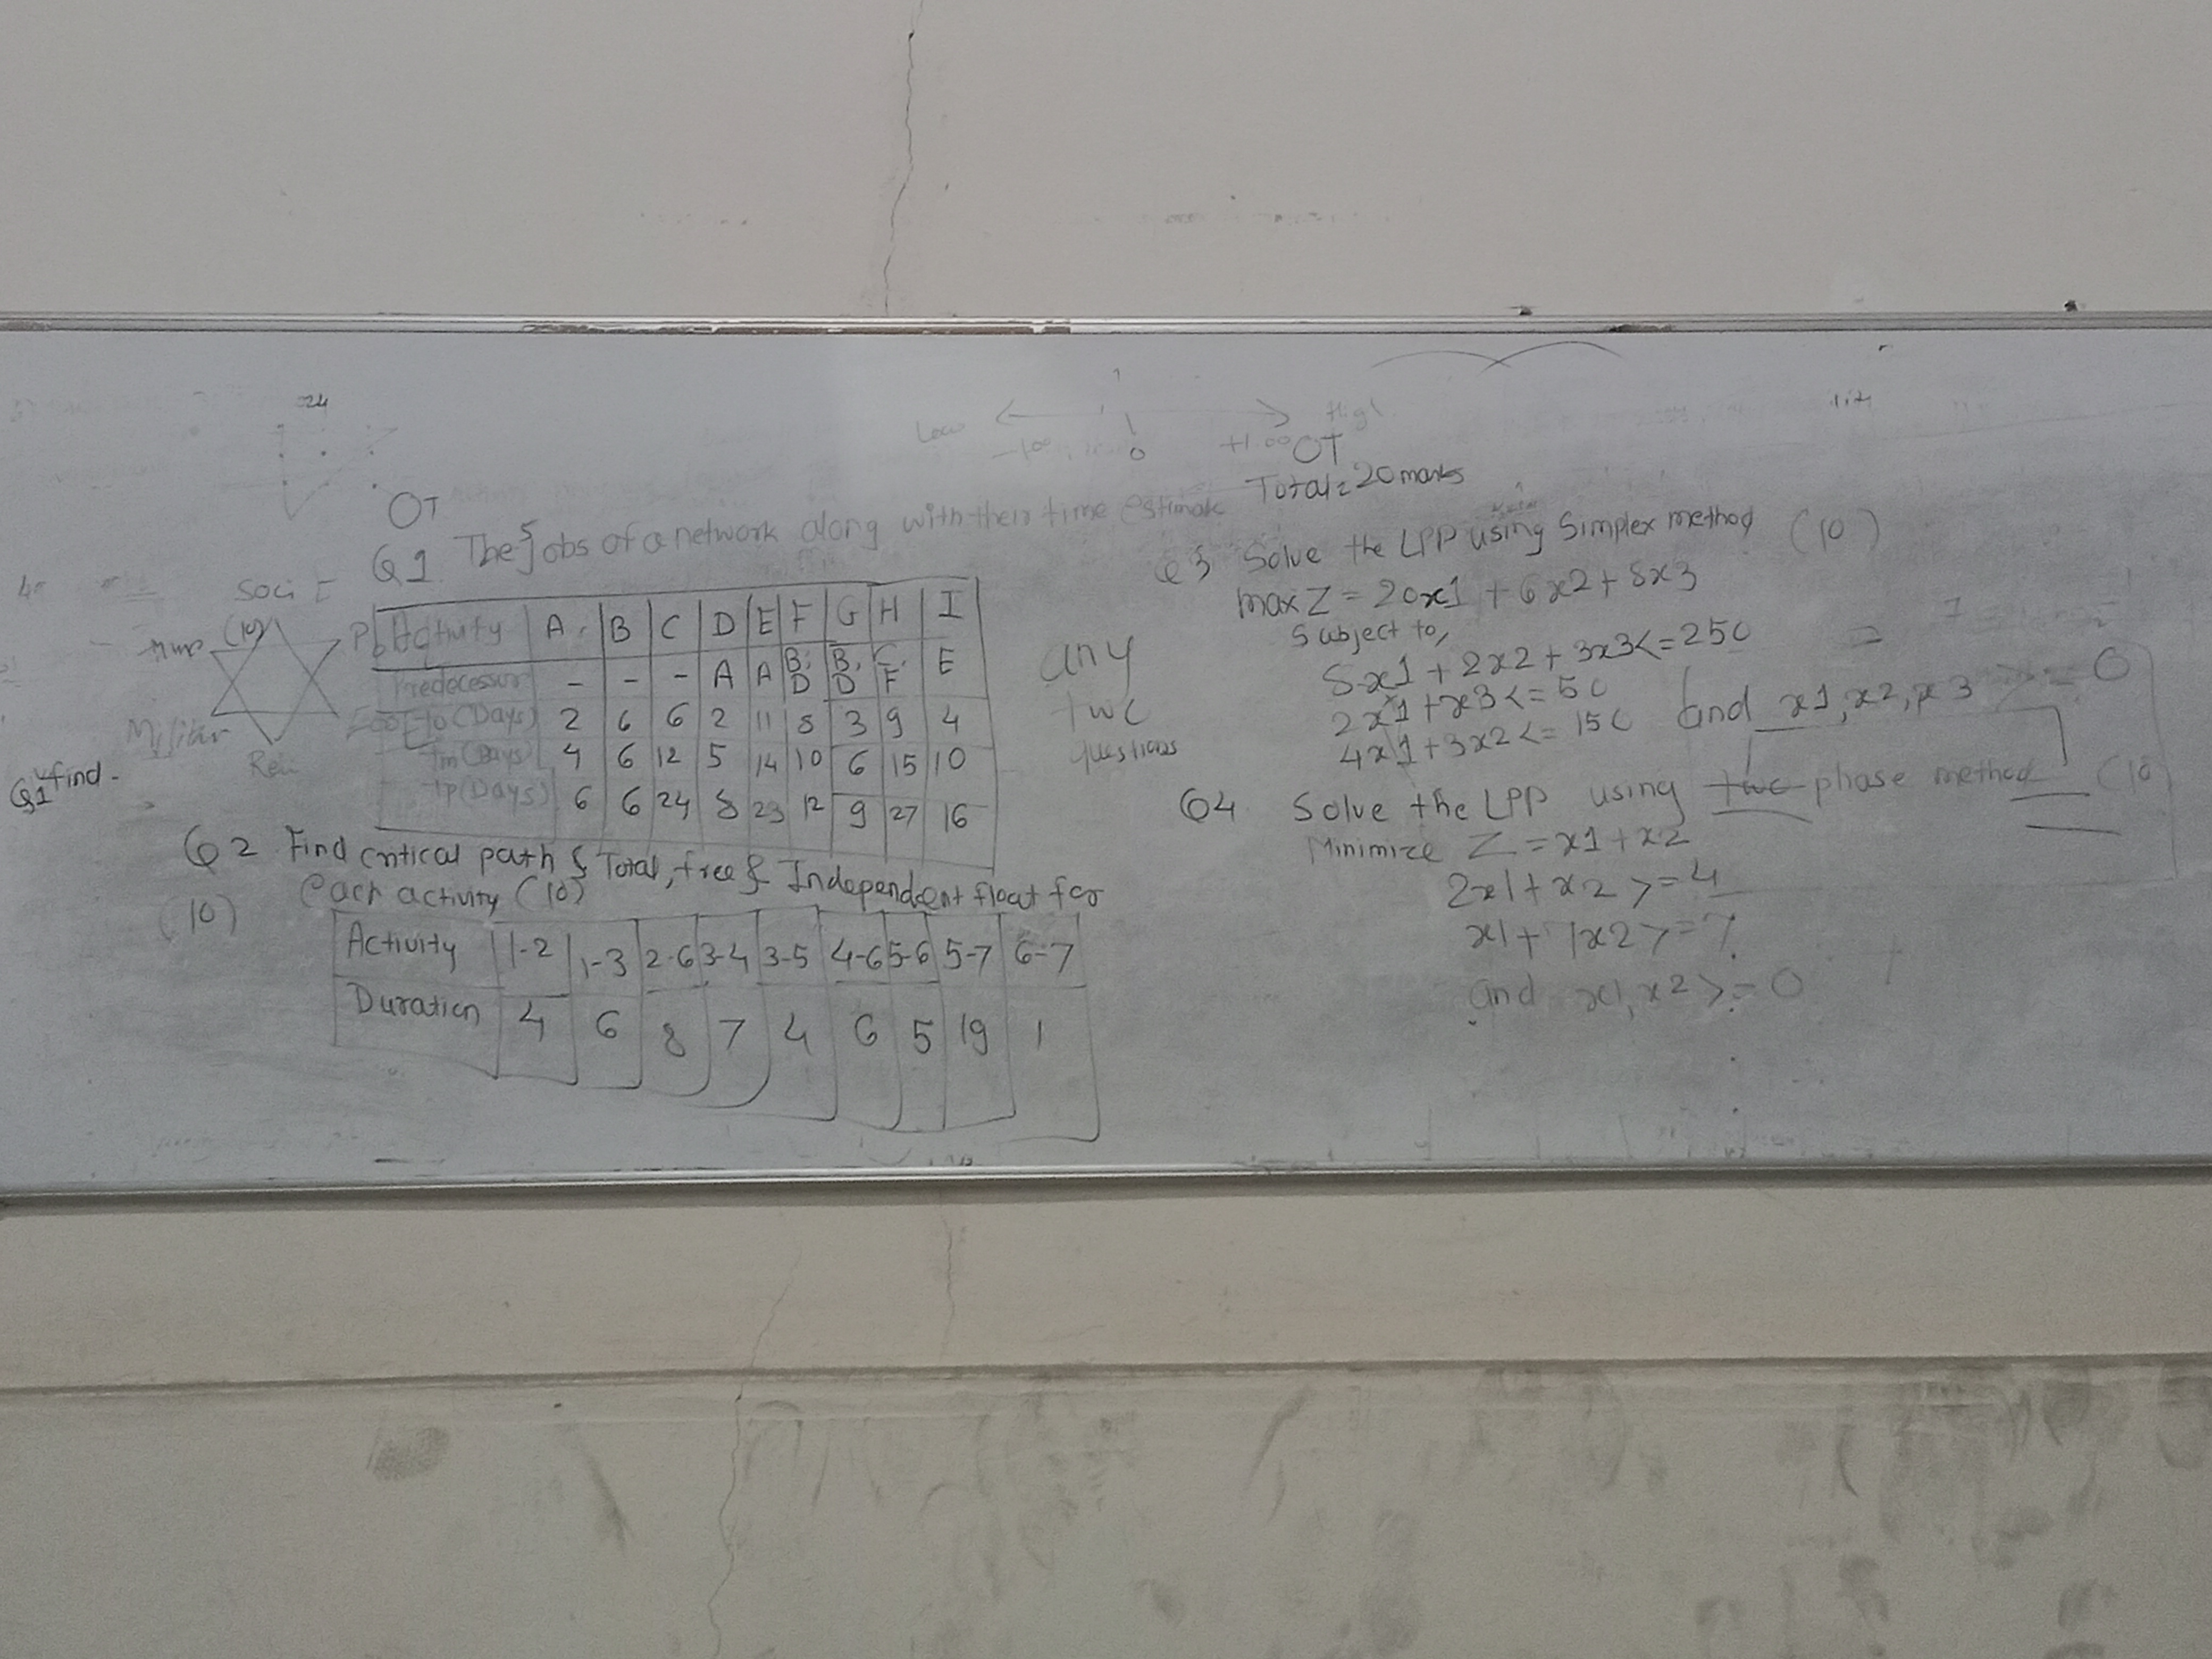 24
Low
High
-1.00
0
+1.00
OT
OT
Total = 20 marks
Q1 The Jobs of a network along with their time estimate
(10)
Activity A B C D E F G H I
Predecessor - - - A A B, D B, D C, F E
to (Days) 2 6 6 2 11 8 3 9 4
tm (Days) 4 6 12 5 14 10 6 15 10
tp (Days) 6 6 24 8 23 12 9 27 16
Q1 find -
any
two
questions
Q2 Find critical path & Total, free & Independent float for
each activity (10)
(10)
Activity 1-2 1-3 2-6 3-4 3-5 4-6 5-6 5-7 6-7
Duration 4 6 8 7 4 6 5 19 1
Q3 Solve the LPP using Simplex method (10)
max Z = 20x1 + 6x2 + 8x3
Subject to,
8x1 + 2x2 + 3x3 <= 250
2x1 + x3 <= 50
4x1 + 3x2 <= 150 and x1, x2, x3 >= 0
Q4 Solve the LPP using two phase method (10
Minimize Z = x1 + x2
2x1 + x2 >= 4
x1 + 7x2 >= 7
and x1, x2 >= 0